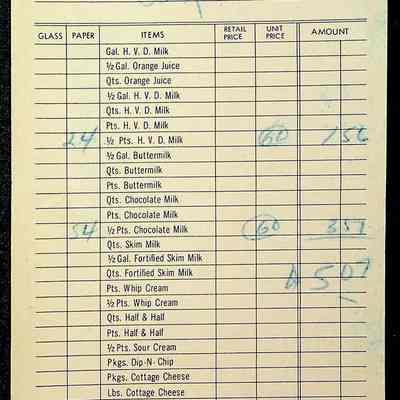 GLASS PAPER ITEMS RETAIL PRICE UNIT PRICE AMOUNT
Gal. H. V. D. Milk
½ Gal. Orange Juice
Qts. Orange Juice
½ Gal. H. V. D. Milk
Qts. H. V. D. Milk
Pts. H. V. D. Milk
24 ½ Pts. H. V. D. Milk 156
½ Gal. Buttermilk
Qts. Buttermilk
Pts. Buttermilk
Qts. Chocolate Milk
Pts. Chocolate Milk
54 ½ Pts. Chocolate Milk 351
Qts. Skim Milk
½ Gal. Fortified Skim Milk
Qts. Fortified Skim Milk 507
Pts. Whip Cream
½ Pts. Whip Cream
Qts. Half & Half
Pts. Half & Half
½ Pts. Sour Cream
Pkgs. Dip-N- Chip
Pkgs. Cottage Cheese
Lbs. Cottage Cheese